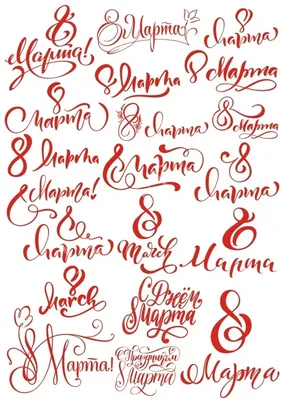 8
Марта!
8 Марта
8
Марта
8 Марта
8 Марта
8
Марта
8
Марта
8
Марта
8
Марта
8 Марта
8 Марта
8
Марта
8
Марта!
8
Марта
8
March
8
Марта
8
March
С Днём
8 Марта
8
8 Марта!
С Праздником
8 Марта
8
Марта